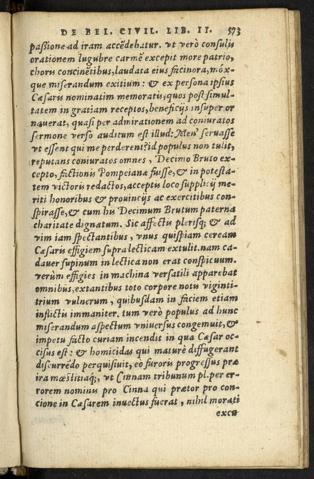 DE BEL. CIVIL. LIB. II. 573
passione ad iram accēdebatur. vt verò consulis
orationem lugubre carmē excepit more patrio,
choris concinētibus, laudata eius facinora, móx-
que miserandum exitium: & ex persona ipsius
Cæsaris nominatim memorati, quos post simul-
tatem in gratiam receptos, beneficijs insuper or
nauerat, quasi per admirationem ad coniuratos
sermone verso auditum est illud: Men' seruasse
vt essent qui me perderent? id populus non tulit,
reputans coniuratos omnes, Decimo Bruto exce-
pto, factionis Pompeianæ fuisse, & in potesta-
tem victoris redactos, acceptis loco supplicij me-
riti honoribus & prouincijs ac exercitibus con-
spirasse, & tum hu Decimum Brutum paterna
charitate dignatum. Sic affectis plerisq; & ad
vim iam spectantibus, vnus quispiam ceream
Cæsaris effigiem supra lecticam extulit. nam ca-
dauer supinum in lectica non erat conspicuum.
verùm effigies in machina versatili apparebat
omnibus, extantibus toto corpore notis viginti-
trium vulnerum, quibusdam in faciem etiam
inflictis immaniter. tum verò populus ad hunc
miserandum aspectum vniuersus congemuit, &
impetu facto curiam incendit in qua Cæsar oc-
cisus est: & homicidas qui maturè diffugerant
discurrēdo perquisiuit, eò furoris progressus præ
ira mœstitiaq;, vt Cinnam tribunum pl. per er-
rorem nominis pro Cinna qui prætor pro con-
cione in Cæsarem inuectus fuerat, nihil morati
excu